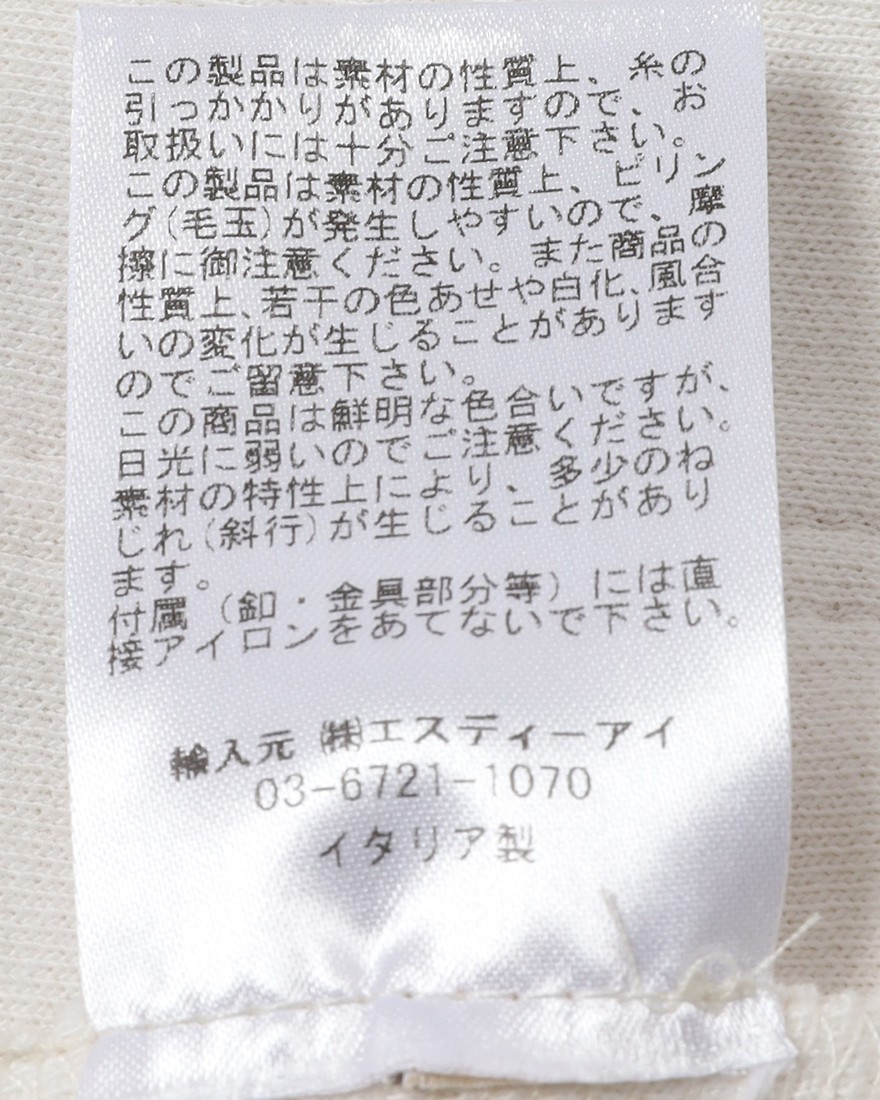 この製品は素材の性質上、糸の
引っかかりがありますので、お
取扱いには十分ご注意下さい。
この製品は素材の性質上、ピリン
グ(毛玉)が発生しやすいので、摩
擦に御注意ください。また商品の
性質上、若干の色あせや白化、風合
いの変化が生じることがあります
のでご留意下さい。
この商品は鮮明な色合いですが、
日光に弱いのでご注意ください。
素材の特性上により、多少のね
じれ(斜行)が生じることがあり
ます。
付属(釦・金具部分等)には直
接アイロンをあてないで下さい。
輸入元 ㈱エスディーアイ
03-6721-1070
イタリア製